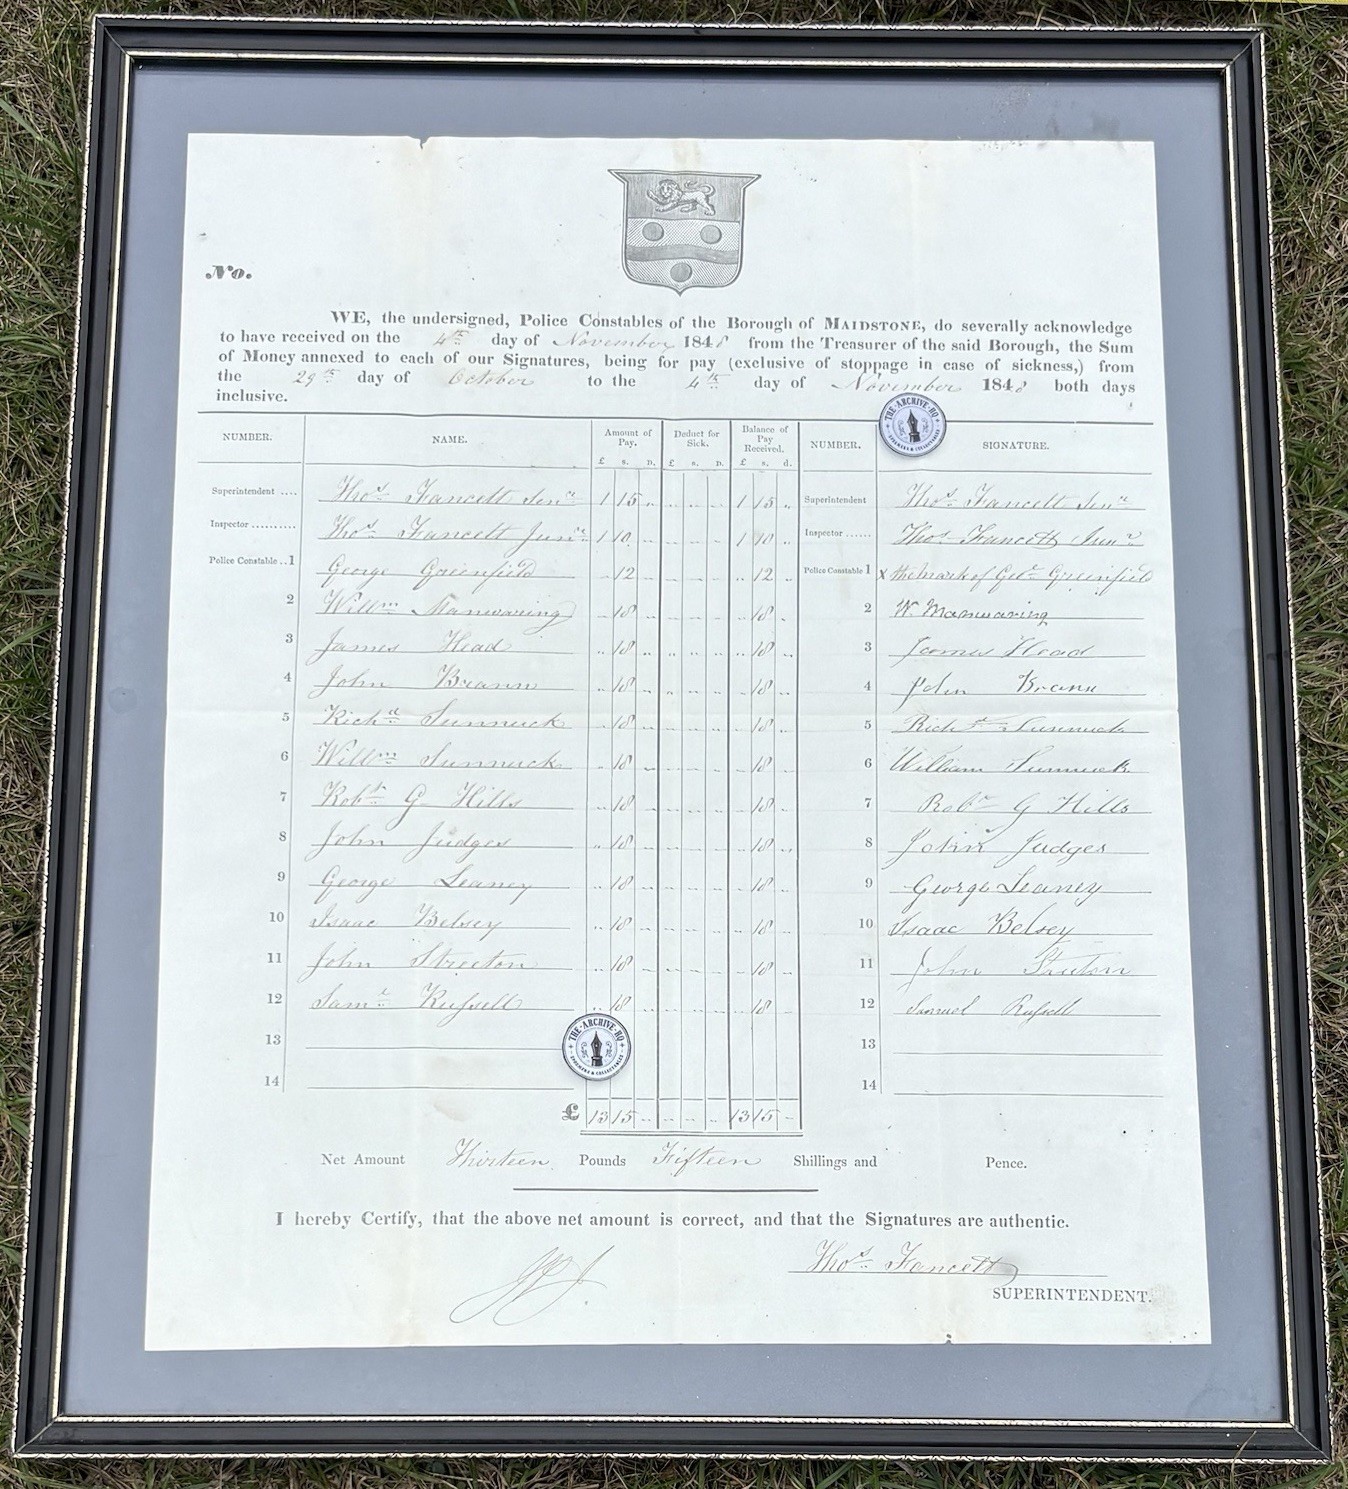 No.
WE, the undersigned, Police Constables of the Borough of MAIDSTONE, do severally acknowledge
to have received on the 4th day of November 1848 from the Treasurer of the said Borough, the Sum
of Money annexed to each of our Signatures, being for pay (exclusive of stoppage in case of sickness,) from
the 29th day of October to the 4th day of November 1848 both days
inclusive.
NUMBER. NAME. Amount of Pay. Deduct for Sick. Balance of Pay Received. NUMBER. SIGNATURE.
£ s. D. £ s. D. £ s. d.
THE·ARCHIVE·HQ
Superintendent .... Thos Fancett Senr 1 15 .. .. .. .. 1 15 .. Superintendent Thos Fancett Senr
Inspector .......... Thos Fancett Junr 1 10 .. .. .. .. 1 10 .. Inspector ...... Thos Fancett Junr
Police Constable ..1 George Greenfield .. 12 .. .. .. .. .. 12 .. Police Constable 1 x the mark of Geoe Greenfield
2 Willm Manwaring .. 18 .. .. .. .. .. 18 .. 2 W. Manwaring
3 James Head .. 18 .. .. .. .. .. 18 .. 3 James Head
4 John Brann .. 18 .. .. .. .. .. 18 .. 4 John Brann
5 Richd Sunnuck .. 18 .. .. .. .. .. 18 .. 5 Richd Sunnuck
6 Willm Sunnuck .. 18 .. .. .. .. .. 18 .. 6 William Sunnuck
7 Robt G Hills .. 18 .. .. .. .. .. 18 .. 7 Robt G Hills
8 John Judges .. 18 .. .. .. .. .. 18 .. 8 John Judges
9 George Leaney .. 18 .. .. .. .. .. 18 .. 9 George Leaney
10 Isaac Belsey .. 18 .. .. .. .. .. 18 .. 10 Isaac Belsey
11 John Streeton .. 18 .. .. .. .. .. 18 .. 11 John
12 Saml Russell .. 18 .. .. .. .. .. 18 .. 12 Samuel Russell
13 13
THE·ARCHIVE·HQ
14 14
£ 13 15 .. .. .. .. 13 15 ..
Net Amount Thirteen Pounds Fifteen Shillings and Pence.
I hereby Certify, that the above net amount is correct, and that the Signatures are authentic.
Thos Fancett
SUPERINTENDENT.